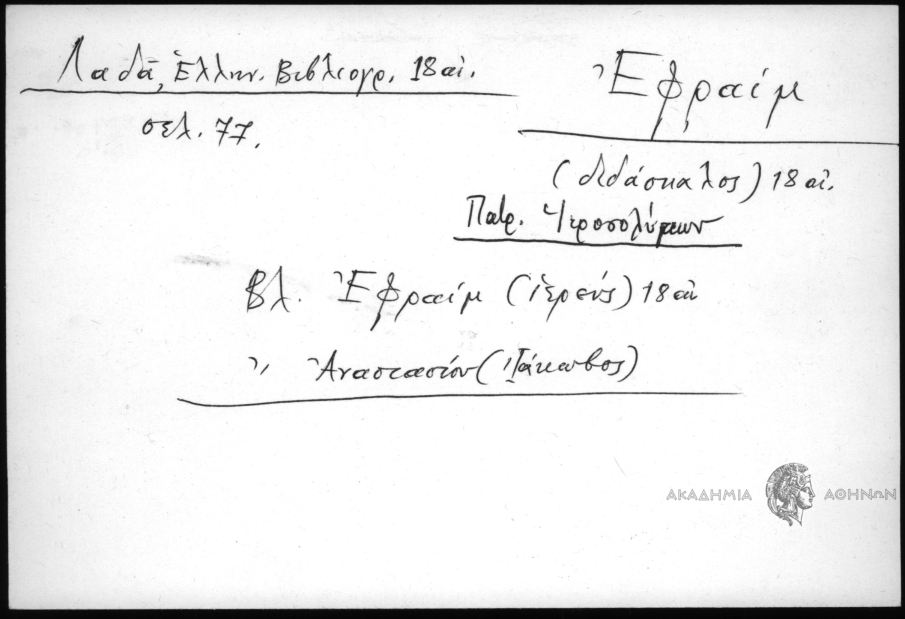 Λαδᾶ, Ἑλλην. Βιβλιογρ. 18 αἰ.
σελ. 77.
Ἐφραίμ
(διδάσκαλος) 18 αἰ.
Πατρ. Ἱεροσολύμων
Βλ. Ἐφραίμ (ἱερεύς) 18 αἰ
〃 Ἀναστασίου (Ἰάκωβος)
ΑΚΑΔΗΜΙΑ ΑΘΗΝΩΝ